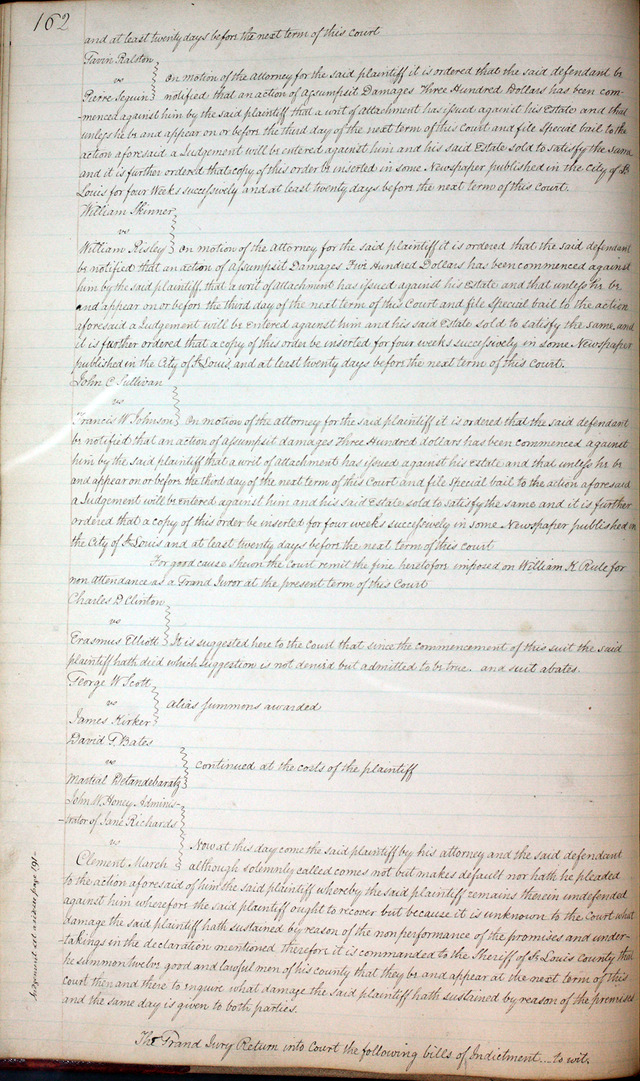 162
and at least twenty days before the next term of this court
Gavin Ralston
vs
Pierre Seguin } On motion of the Attorney for the said plaintiff it is ordered that the said defendant be
notified that an action of assumpsit Damages Three Hundred Dollars has been com-
-menced against him by the said plaintiff that a writ of attachment has issued against his Estate and that
unless he be and appear on or before the third day of the next term of this Court and file Special bail to the
action aforesaid a Judgement will be entered against him and his said Estate sold to satisfy the same
and it is further ordered that copy of this order be inserted in some Newspaper published in the City of St
Louis for four Weeks successively and at least twenty days before the next term of this Court.
William Skinner
vs
William Risley } On motion of the Attorney for the said plaintiff it is ordered that the said defendant
be notified that an action of assumpsit Damages Five Hundred Dollars has been commenced against
him by the said plaintiff, that a writ of attachment has issued against his Estate and that unless he be
and appear on or before the third day of the next term of this Court and file Special bail to the action
aforesaid a Judgement will be entered against him and his said Estate sold to satisfy the same, and
it is further ordered that a copy of this order be inserted for four weeks successively in some Newspaper
published in the City of St Louis, and at least twenty days before the next term of this Court.
John C Sullivan
vs
Francis W Johnson } On motion of the attorney for the said plaintiff it is ordered that the said defendant
be notified that an action of assumpsit damages Three Hundred dollars has been commenced against
him by the said plaintiff that a writ of attachment has issued against his Estate and that unless he be
and appear on or before the third day of the next term of this Court and file Special bail to the action aforesaid
a Judgement will be entered against him and his said Estate sold to satisfy the same and it is further
ordered that a copy of this order be inserted for four weeks successively in some Newspaper published in
the City of St Louis and at least twenty days before the next term of this court
For good cause shewn the Court remit the fine heretofore imposed on William K Rule for
non attendance as a Grand Juror at the present term of this Court
Charles D Clinton
vs
Erasmus Elliott } It is suggested here to the Court that since the commencement of this suit the said
plaintiff hath died which suggestion is not denied but admitted to be true. and suit abates.
George W Scott
vs } alias summons awarded
James Kirker
David G. Bates
vs } continued at the costs of the plaintiff
Martial Detandebaratz
John W. Honey Adminis-
-trator of Jane Richards
vs
Clement March } Now at this day come the said plaintiff by his attorney and the said defendant
although solemnly called comes not but makes default nor hath he pleaded
to the action aforesaid of him the said plaintiff whereby the said plaintiff remains therein undefended
against him wherefore the said plaintiff ought to recover but because it is unknown to the Court what
damage the said plaintiff hath sustained by reason of the nonperformance of the promises and under-
-takings in the declaration mentioned therefore it is commanded to the Sheriff of St Louis County that
he summon twelve good and lawful men of his county that they be and appear at the next term of this
court then and there to inquire what damage the said plaintiff hath sustained by reason of the premises
and the same day is given to both parties.
Judgement set aside see page 191-
The Grand Jury Return into Court the following bills of Indictment... to wit.